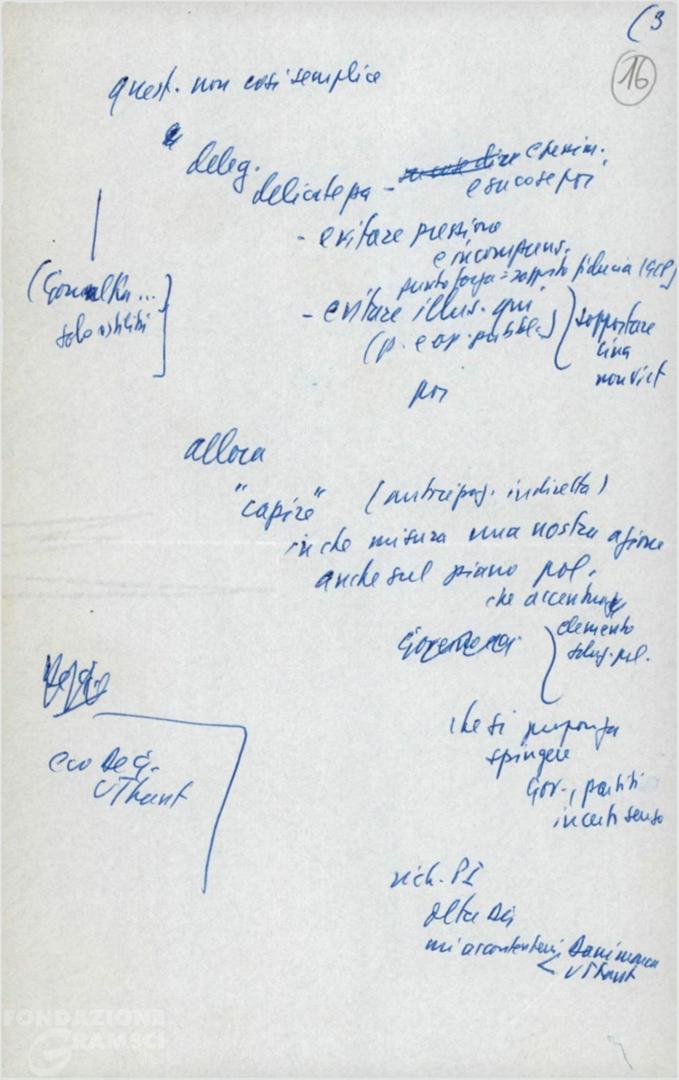 (3
16
quest. non così semplice
deleg.
delicatezza -
e su cose poi
- evitare pressione
e incompens.
punto forza = rapporto fiducia (GCP)
- evitare illus. qui
(p. e op. pubbl.)
sopportare
Cina
non Viet
(Gomulka ...
solo ostilità
poi
allora
"capire" (anticipaz. indiretta)
in che misura una nostra azione
anche sul piano pol.
che accentui
elemento
soluz. pol.
che si proponga
spingere
Gov., partiti
in certo senso
eco De G.
U Thant
rich. PI
oltre
mi accontenterei Danimarca
U Thant
FONDAZIONE
GRAMSCI